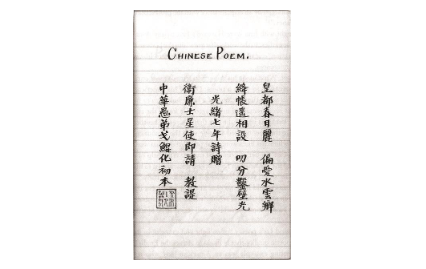 CHINESE POEM.
皇都春日麗 偏愛水雲鄉
絳帳遙相設 叨分鑿壁光
光緒七年詩贈
衛廉士星使即請 教諟
中華愚弟戈鯤化初本